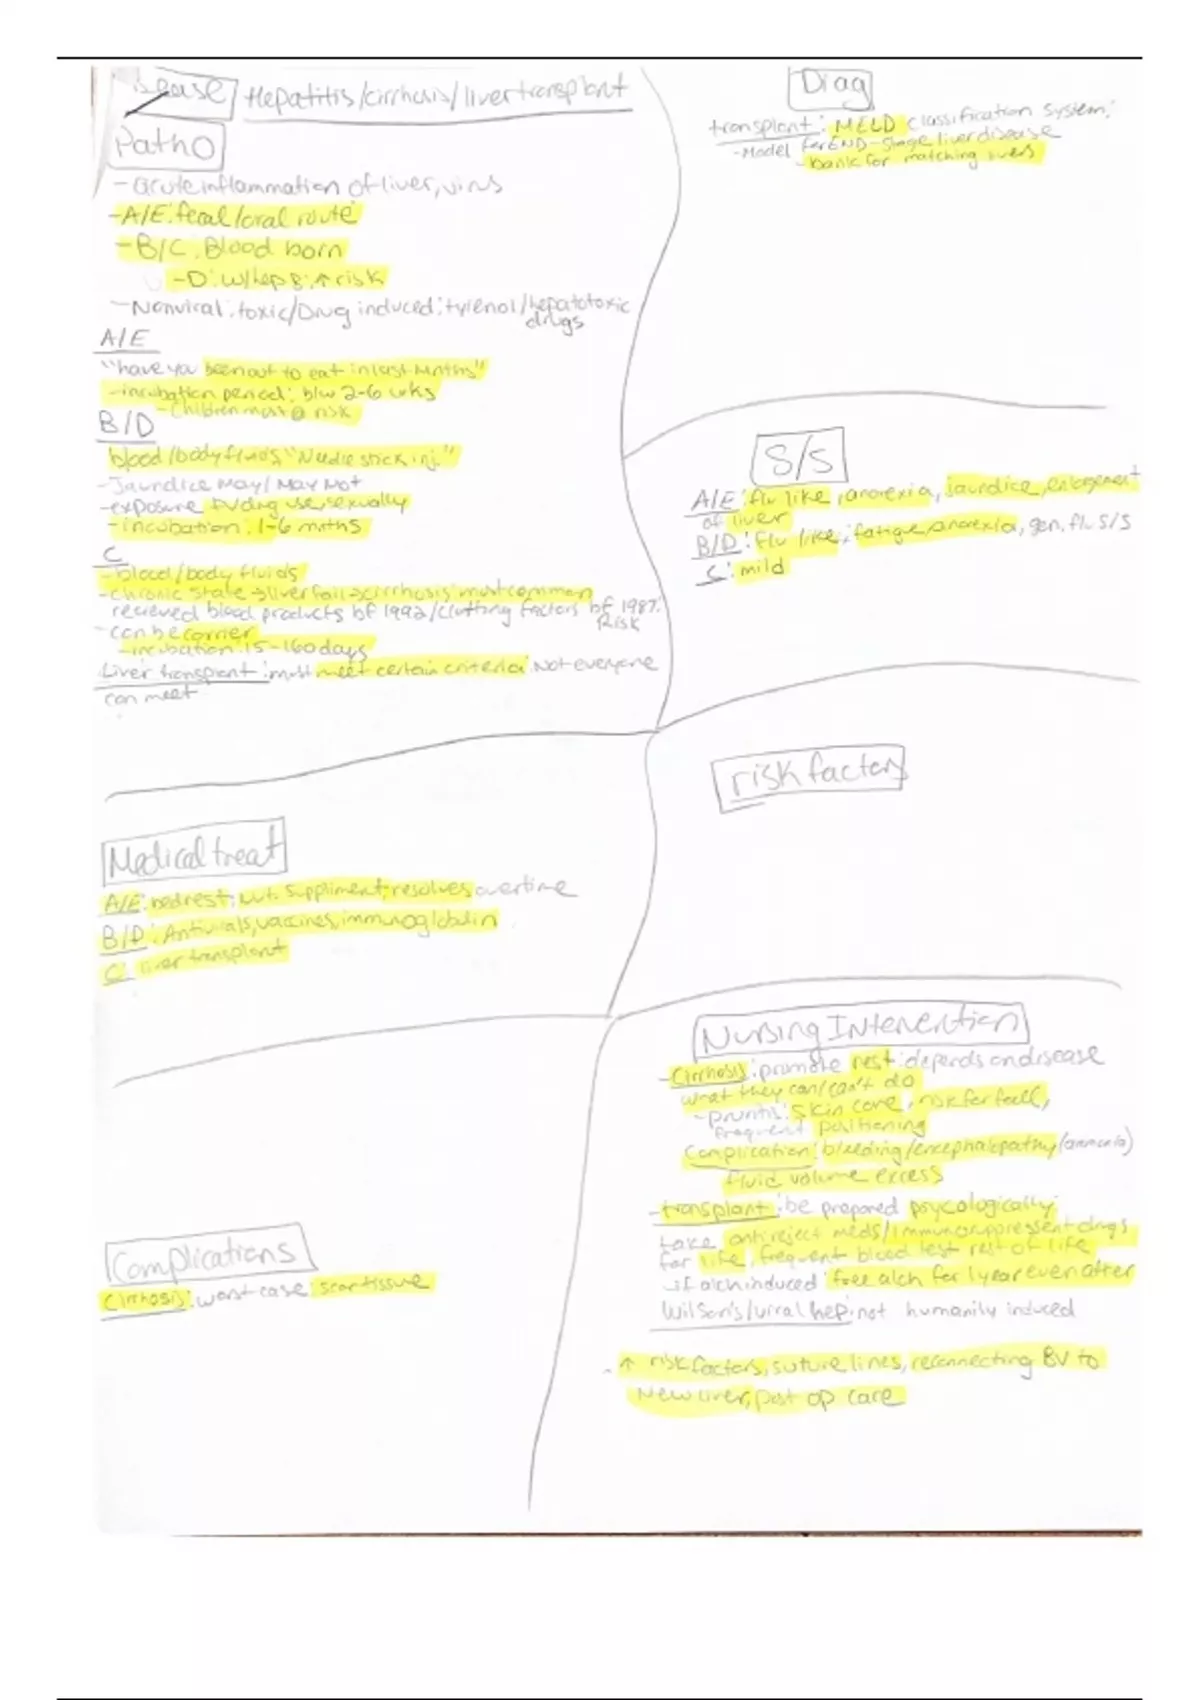 Disease Hepatitis/cirrhosis/liver transplant
Patho
- acute inflammation of liver, virus
- A/E: fecal/oral route
- B/C: Blood born
- D: w/hep B: ↑ risk
- Nonviral: toxic/Drug induced: tylenol/hepatotoxic
drugs
A/E
"have you been out to eat in last mnths"
- incubation period: b/w 2-6 wks
- Children most @ risk
B/D
blood/body fluids, "Needle stick inj."
- Jaundice may/May Not
- exposure IV drug use, sexually
- incubation: 1-6 mnths
C
- blood/body fluids
- chronic state → liver fail → cirrhosis: most common
recieved blood products bf 1992/clotting factors bf 1987:
Risk
- can be carrier
- incubation: 15-160 days
Liver transplant: must meet certain criteria: Not everyone
can meet
Diag
transplant: MELD classification system:
- Model for END-stage liver disease
- bank for matching livers
S/S
A/E: flu like, anorexia, jaundice, enlargement
of liver
B/D: flu like: fatigue, anorexia, gen. flu S/S
C: mild
risk factors
Medical treat
A/E: bedrest; nut. suppliment; resolves overtime
B/D: Antivirals, vaccines, immunoglobulin
C: liver transplant
Complications
Cirrhosis: worst case: scar tissue
Nursing Intervention
- Cirrhosis: promote rest: depends on disease
what they can/can't do
- pruritis: skin care, risk for fall,
frequent positioning
Complication: bleeding/encephalopathy (ammonia)
fluid volume excess
- transplant: be prepared psycologically
take antireject meds/immunosuppressent drugs
for life, frequent blood test rest of life
- if alch induced: free alch for 1 year even after
Wilson's/viral hep: not humanily induced
- ↑ risk factors, suture lines, reconnecting BV to
New liver, post op care